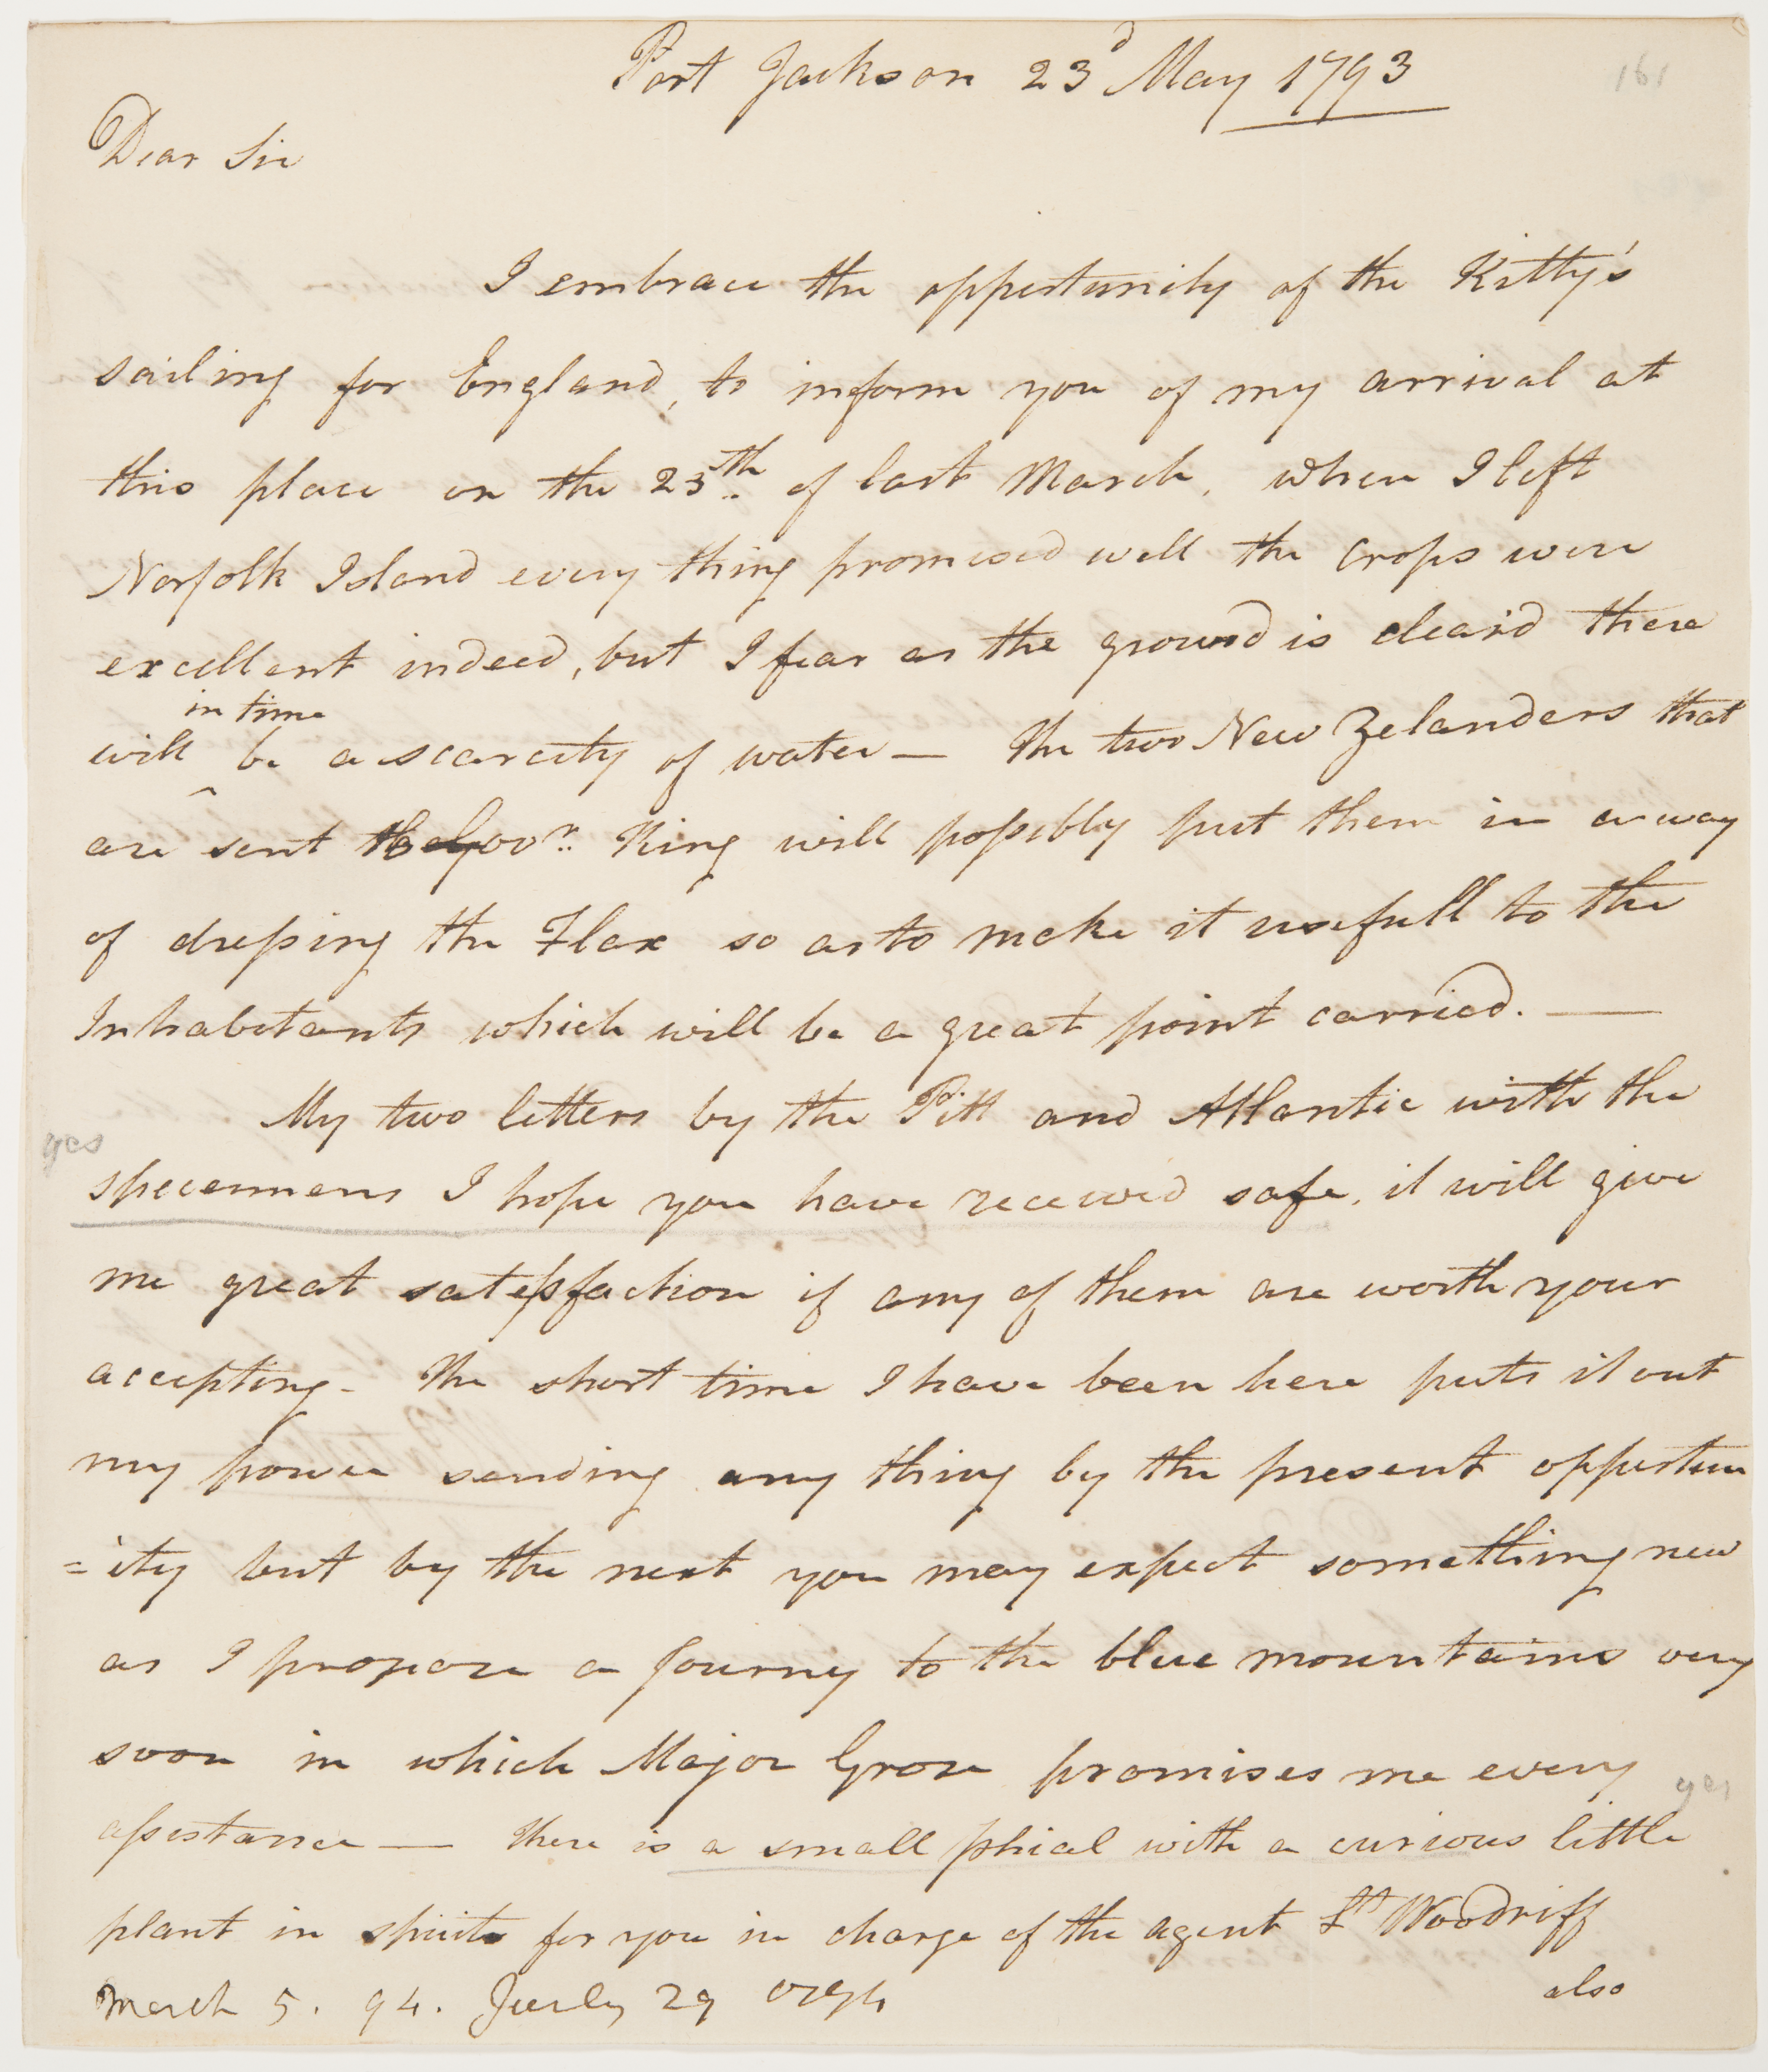 161
Port Jackson 23d May 1793
Dear Sir
I embrace the oppertunity of the Kitty's
sailing for England, to inform you of my arrival at
this place on the 23th of last March, when I left
Norfolk Island every thing promised well the crops were
excellent indeed, but I fear as the ground is clear'd there
in time
will ^ be a scarcity of water — The two New Zelanders that
are sent Govr. King will possibly put them in a way
of dressing the Flax so as to make it usefull to the
Inhabitants which will be a great point carried. —
My two letters by the Pitt and Atlantic with the
yes
specemens I hope you have received safe, it will give
me great satesfaction if any of them are worth your
accepting - The short time I have been here puts it out
my power sending any thing by the present oppertun
=ity but by the next you may expect something new
as I propose a Journy to the blue mountains very
soon in which Major Grose promises me every
yes
assistance — there is a small phial with a curious little
plant in spirits for you in charge of the agent Lt Woodriff
also
March 5. 94. July 29